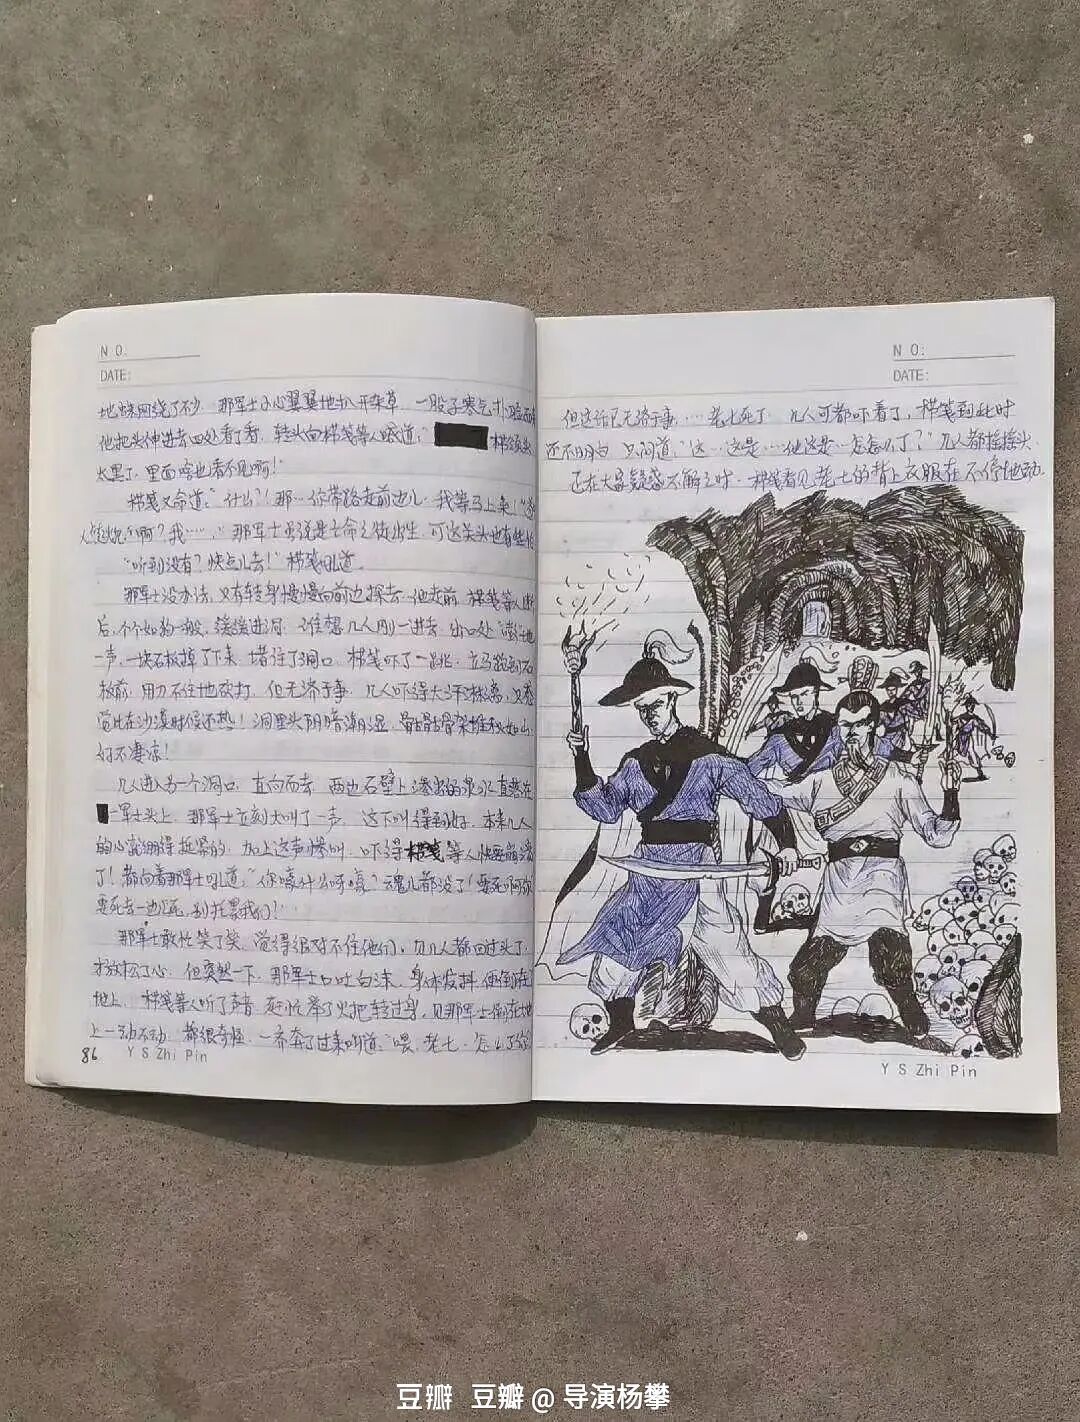 NO:
DATE:
地蛛网绕了不少. 那军士小心翼翼地扒开杂草, 一股子寒气扑脸而来
他把头伸进去四处看了看, 转头向栟笺等人喊道:“ 栟领头
太黑了, 里面啥也看不见啊!”
栟笺又命道:“什么?! 那…你带路走前边儿, 我等马上来!”
人 啊? 我……” 那军士虽说是亡命之徒出生, 可这关头也有些怕
“听到没有? 快点儿去!” 栟笺吼道.
那军士没办法, 只有转身慢慢向前边探去. 他走前, 栟笺等人进
后, 个个如狗一般, 缓缓进洞. 谁想几人刚一进去, 出口处“ 地
一声, 一块石板掉了下来, 堵住了洞口. 栟笺吓了一跳, 立马跑到石
板前, 用力不住地砍打, 但无济于事, 几人吓得大汗淋漓, 只感
觉比在沙漠时候还热! 洞里头阴暗潮湿, 骨架堆积如山,
好不凄凉!
几人进入另一个洞口, 直向而去, 两边石壁上渗出的泉水直落在
一军士头上, 那军士立刻大叫了一声, 这下叫得到好, 本来几人
的心就绷得挺紧的, 加上这声惨叫, 吓得栟笺等人快要崩溃
了! 都向着那军士吼道:“你嚎什么呀嚎? 魂儿都没了! 要死啊 你
要死去一边死, 别拉累我们!”
那军士敢忙笑了笑, 觉得很对不住他们, 见几人都回过头了,
才放松了心. 但突然一下, 那军士口吐白沫, 身体发抖, 便倒在
地上, 栟笺等人听了声音, 赶忙举了火把转过身, 见那军士倒在地
上一动不动, 都很奇怪, 一齐奔了过来叫道:“喂, 老七, 怎么了你
86 Y S Zhi Pin
NO:
DATE:
但这话已无济于事, …… 老七死了, 几人可都吓着了, 栟笺到此时
还不明白, 只问道:“这…这是……他这是…怎怎么了?” 几人都摇摇头
正在大家疑惑不解之时, 栟笺看见老七的背上衣服在不停地动
Y S Zhi Pin
豆瓣 豆瓣@导演杨攀